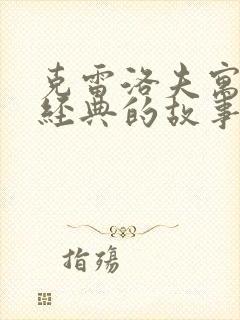 克雷洛夫寓
經典的故事
指殤